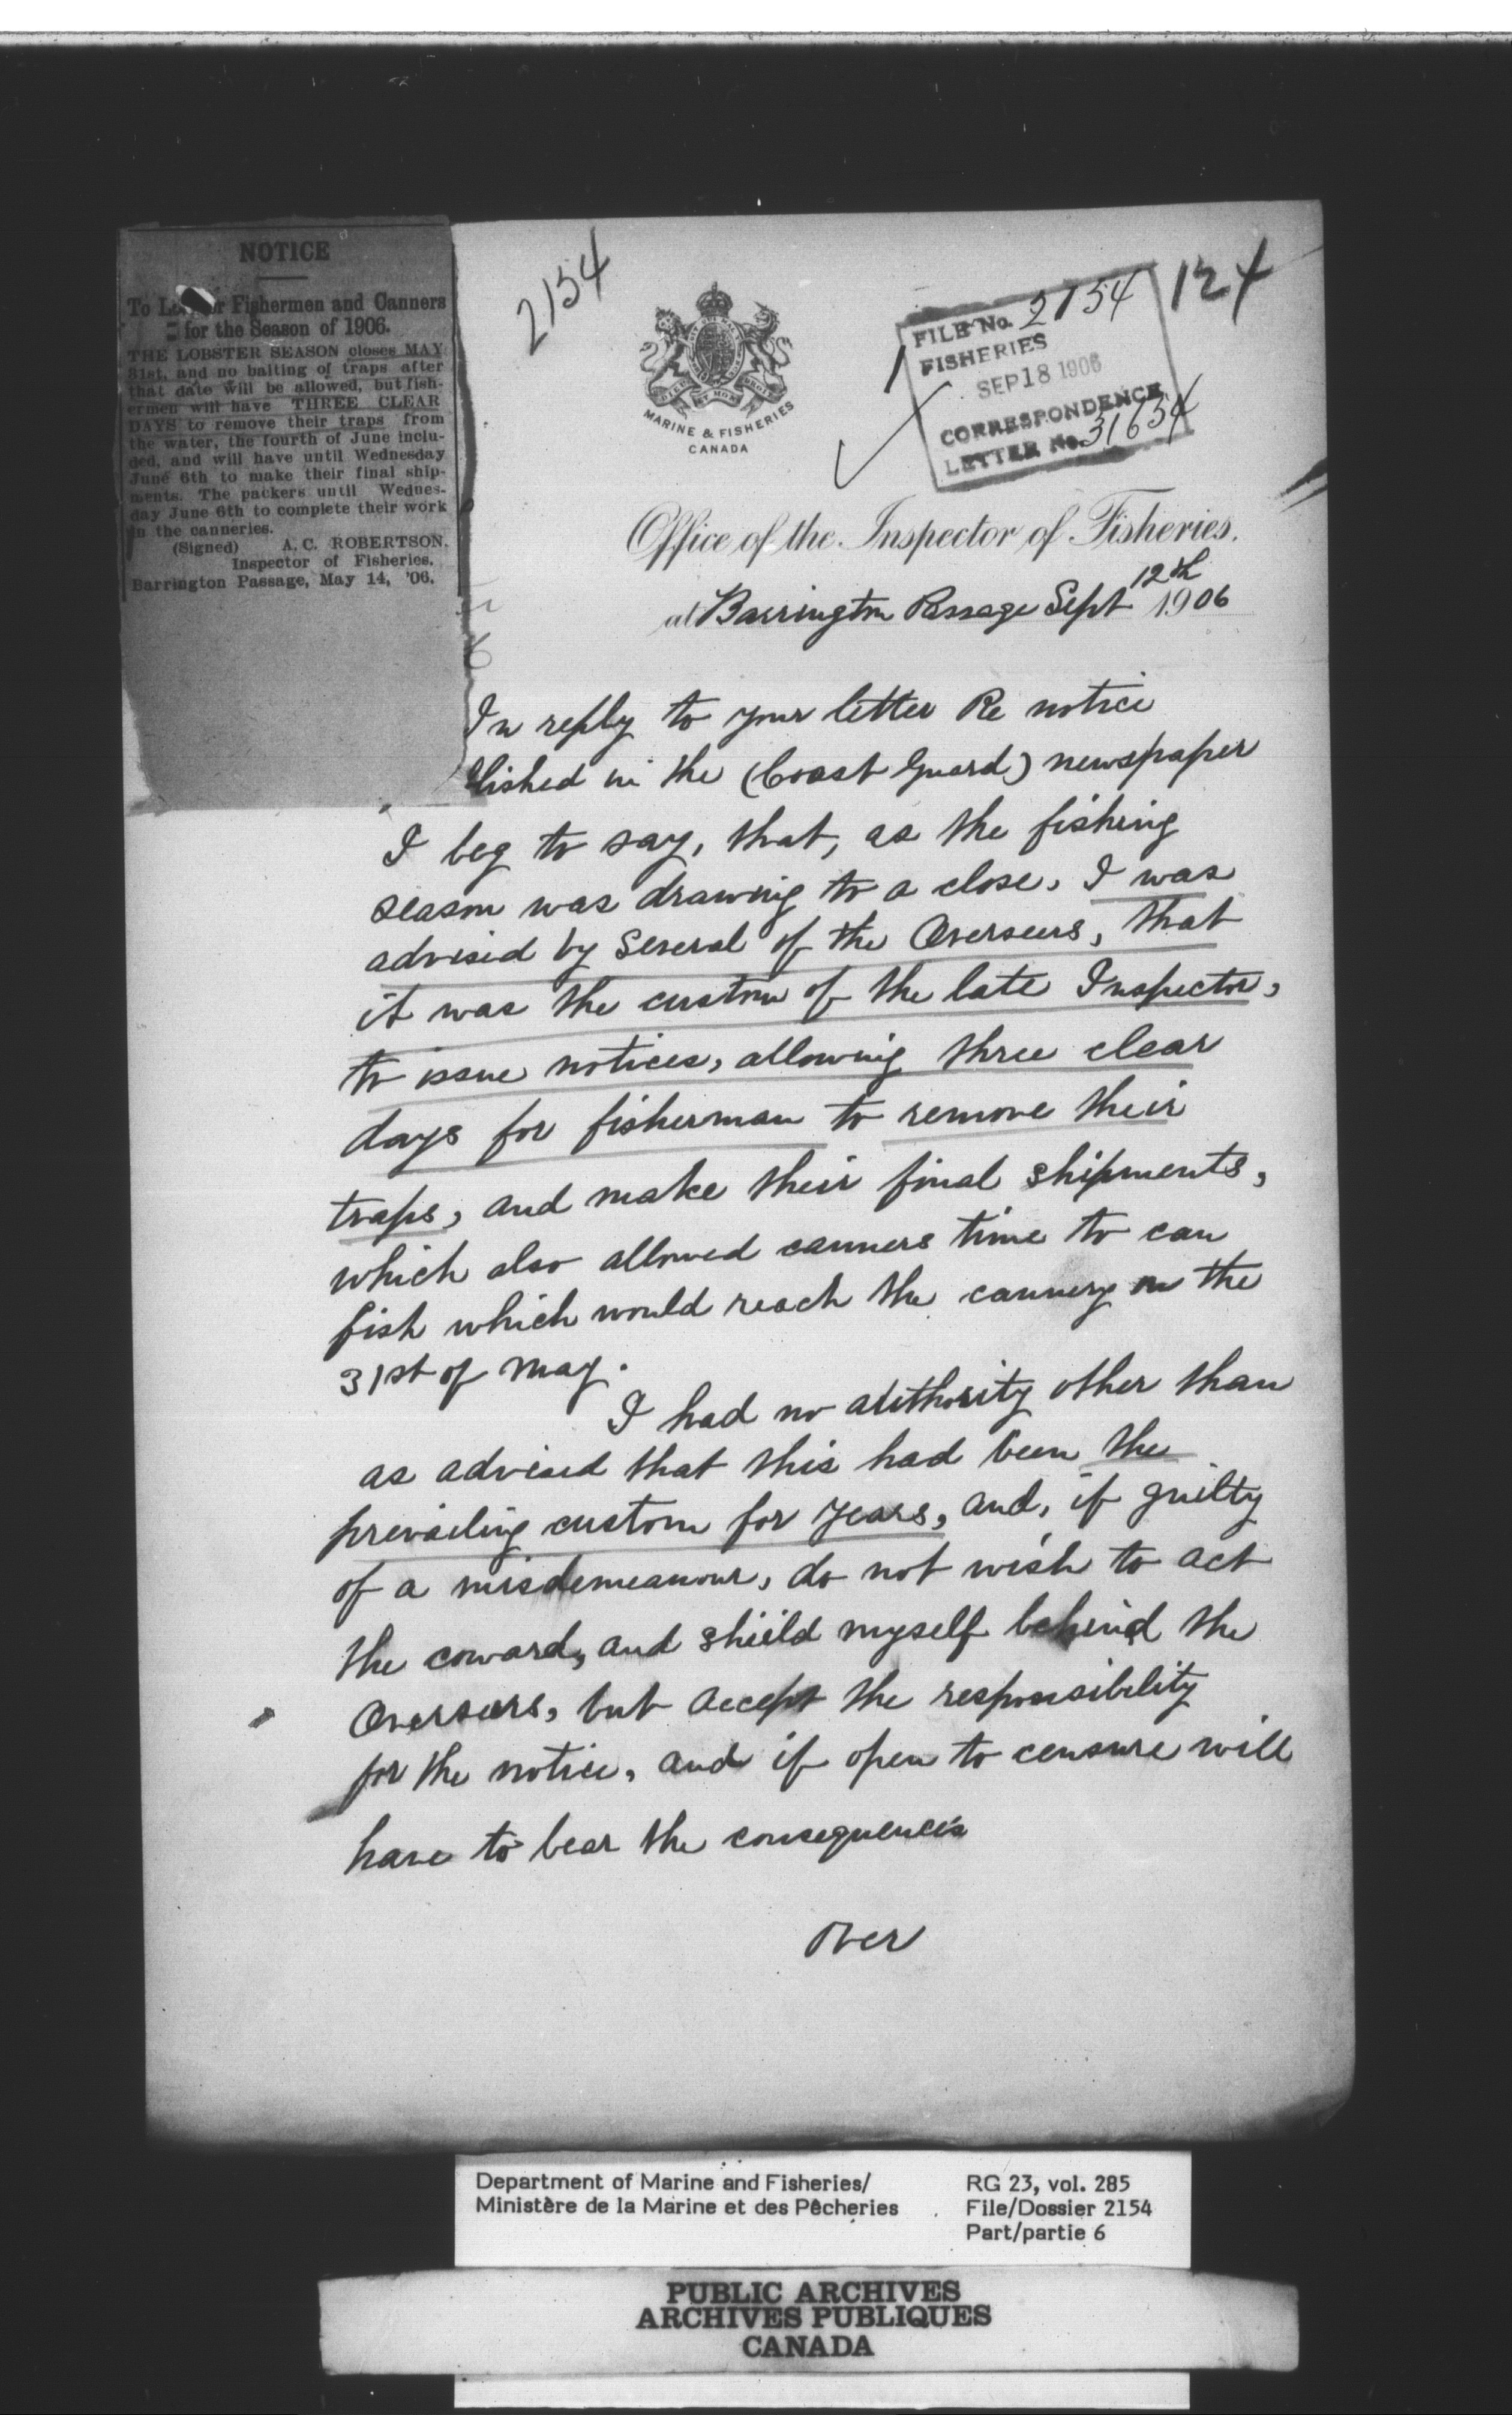 NOTICE
To Lo r Fishermen and Canners
for the Season of 1906.
THE LOBSTER SEASON closes MAY
31st, and no baiting of traps after
that date will be allowed, but fish-
ermen will have THREE CLEAR
DAYS to remove their traps from
the water, the fourth of June inclu-
ded, and will have until Wednesday
June 6th to make their final ship-
ments. The packers until Wednes-
day June 6th to complete their work
in the canneries.
(Signed) A. C. ROBERTSON.
Inspector of Fisheries.
Barrington Passage, May 14, '06.
2154
DIEU ET MON DROIT
MARINE & FISHERIES
CANADA
124
FILE No. 2154
FISHERIES
SEP 18 1906
CORRESPONDENCE
LETTER No. 31654
Office of the Inspector of Fisheries.
at Barrington Passage Sept 12th 1906
In reply to your letter Re notice
lished in the (Coast Guard) newspaper
I beg to say, that, as the fishing
season was drawing to a close, I was
advised by several of the Overseers, that
it was the custom of the late Inspector,
to issue notices, allowing three clear
days for fisherman to remove their
traps, and make their final shipments,
which also allowed canners time to can
fish which would reach the cannery on the
31st of May.
I had no authority other than
as advised that this had been the
prevailing custom for years, and, if guilty
of a misdemeanour, do not wish to act
the coward, and shield myself behind the
Overseers, but accept the responsibility
for the notice, and if open to censure will
have to bear the consequences
Over
Department of Marine and Fisheries/
Ministère de la Marine et des Pêcheries
RG 23, vol. 285
File/Dossier 2154
Part/partie 6
PUBLIC ARCHIVES
ARCHIVES PUBLIQUES
CANADA